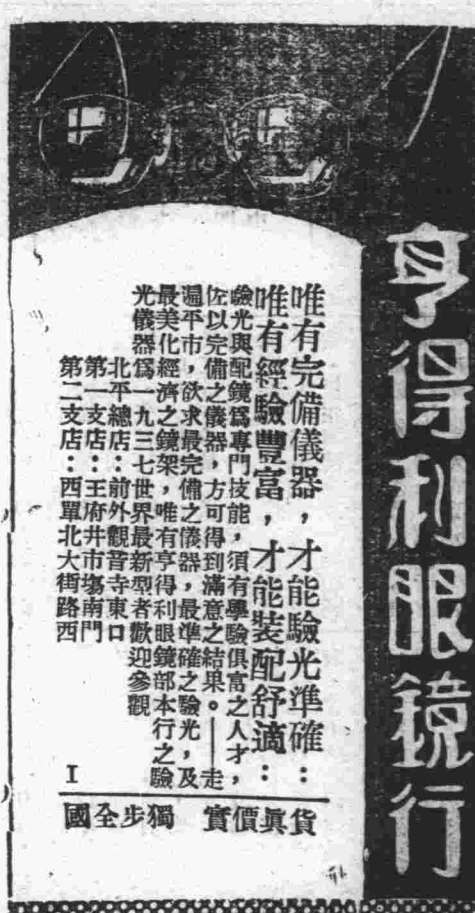 亨得利眼鏡行
唯有完備儀器，才能驗光準確：
唯有經驗豐富，才能裝配舒適：
驗光與配鏡爲專門技能，須有學驗俱富之人才，
佐以完備之儀器，方可得到滿意之結果。——走
遍平市，欲求最完備之儀器，最準確之驗光，及
最美化經濟之鏡架，唯有亨得利眼鏡部本行之驗
光儀器爲一九三七世界最新型者歡迎參觀
北平總店：前外觀音寺東口
第一支店：王府井市場南門
第二支店：西單北大街路西
I
貨真價實　獨步全國